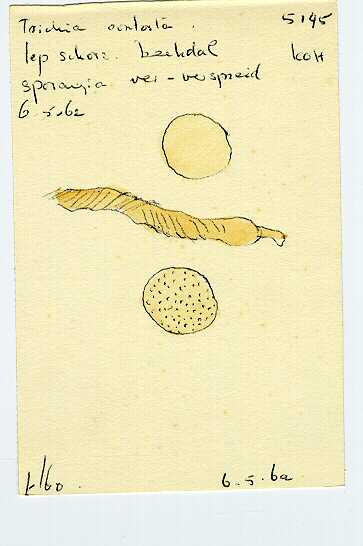 Trichia contorta. 5145
iep schors. beekdal KOH
sporangia ver-verspreid
6.5.62
6.5.62